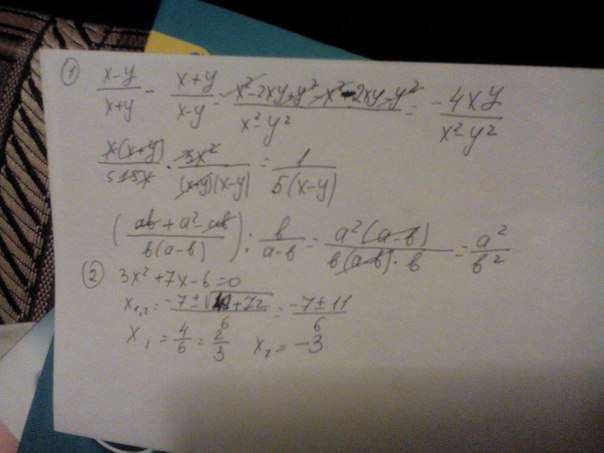 ① (x-y)/(x+y) - (x+y)/(x-y) = (x²-2xy+y²-x²-2xy-y²)/(x²-y²) = -4xy/(x²-y²)
x(x+y)/(15x) · 3x²/((x+y)(x-y)) = 1/(5(x-y))
((ab+a²-ab)/(b(a-b))) : b/(a-b) = a²(a-b)/(b(a-b)·b) = a²/b²
② 3x²+7x-6=0
x₁,₂ = (-7±√(+72))/6 = (-7±11)/6
x₁ = 4/6 = 2/3 x₂ = -3